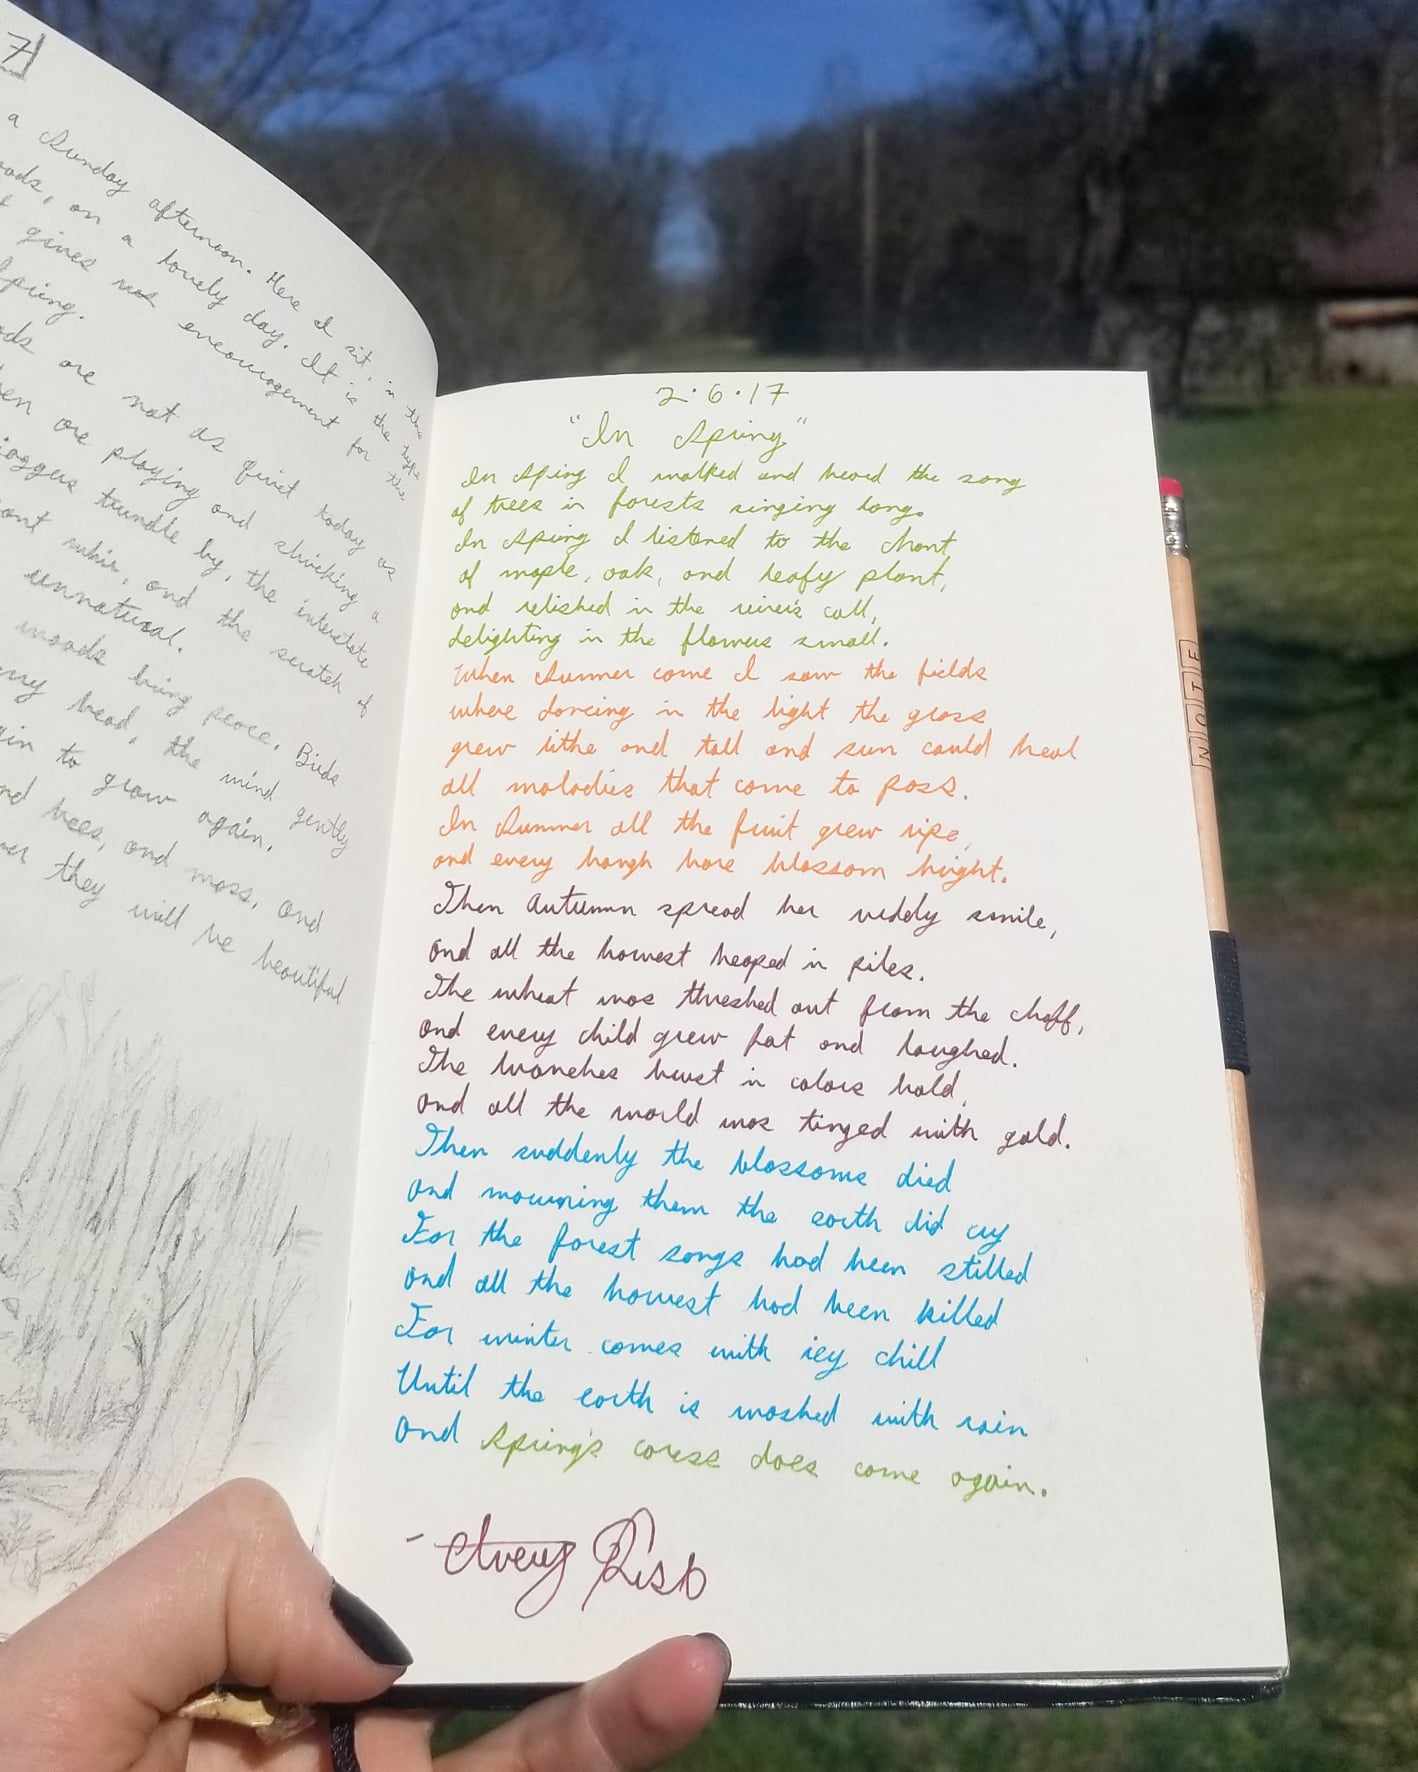 7
a Sunday afternoon. Here I sit, in the
on a lovely day. It is the type
gives encouragement for the
Spring.
are not as quiet today as
are playing and shrieking a
joggers trundle by, the interstate
whir, and the scratch of
unnatural.
woods bring peace. Birds
my head, the mind gently
to grow again.
trees, and moss, and
they will be beautiful
2·6·17
"In Spring"
In Sping I walked and heard the song
of trees in forests singing long.
In Spring I listened to the chant
of maple, oak, and leafy plant,
and relished in the river's call,
delighting in the flowers small.
When Summer come I saw the fields
where dancing in the light the grass
grew lithe and tall and sun could heal
all malodies that come to pass.
In Summer all the fruit grew ripe,
and every bough bore blossom bright.
Then Autumn spread her widely smile,
and all the harvest heaped in piles.
The wheat was threshed out from the chaff,
and every child grew fat and laughed.
The branches burst in colors bold,
and all the world was tinged with gold.
Then suddenly the blossoms died
and mourning them the earth did cry
For the forest songs had been stilled
and all the harvest had been killed
For winter comes with icy chill
Until the earth is washed with rain
and Spring's caress does come again.
- Avery Risb
NOTE